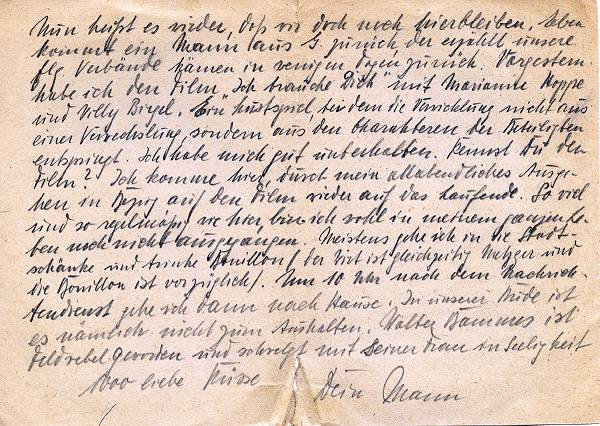 Nun heißt es wieder, daß wir doch noch hierbleiben. Eben
kommt ein Mann aus J. zurück der erzählt unsere
flg. Verbände kämen in wenigen Tagen zurück. Vorgestern
habe ich den Film „Ich brauche Dich“ mit Marianne Hoppe
und Willy Birgel. Ein Lustspiel, bei dem die Verwicklung nicht aus
einer Verwechslung, sondern aus den Charakteren der Beteiligten
entspringt. Ich habe mich gut unterhalten. Kennst Du den
Film? Ich komme hier, durch mein allabendliches Ausge-
hen in Bezug auf den Film wieder auf das Laufende. So viel
und so regelmäßig wie hier, bin ich wohl in meinem ganzen Le-
ben noch nicht ausgegangen. Meistens gehe ich in die Stadt-
schänke und trinke Bouillon (der Wirt ist gleichzeitig Metzger und
die Bouillon ist vorzüglich). Um 10 Uhr nach dem Nachrich-
tendienst gehe ich dann nach Hause. In unserer Bude ist
es nämlich nicht zum Aushalten. Walter ist
Feldwebel geworden und schwelgt mit seiner Frau in Seeligkeit
1000 liebe Küsse Dein Mann